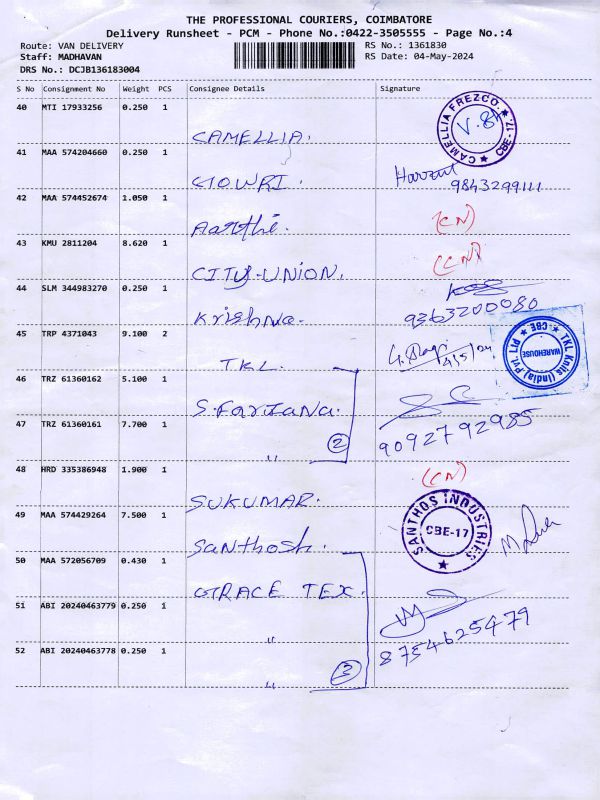 THE PROFESSIONAL COURIERS, COIMBATORE
Delivery Runsheet - PCM - Phone No.:0422-3505555 - Page No.:4
Route: VAN DELIVERY
RS No.: 1361830
Staff: MADHAVAN
RS Date: 04-May-2024
DRS No.: DCJB136183004
S No Consignment No Weight PCS Consignee Details Signature
40 MTI 17933256 0.250 1
CAMELLIA.
CAMELLIA FREZCO. CBE-17.
V.84
41 MAA 574204660 0.250 1
GOWRI.
9843299111
42 MAA 574452674 1.050 1
Aarthi.
(CN)
43 KMU 2811204 8.620 1
CITY-UNION.
(CN)
44 SLM 344983270 0.250 1
Krishna.
9363200080
45 TRP 4371043 9.100 2
TKL.
4/5/24
TKL Knits (India) Pvt. Ltd. CBE
WAREHOUSE
46 TRZ 61360162 5.100 1
S.Farjana.
47 TRZ 61360161 7.700 1
9092792985
"
2
48 HRD 335386948 1.900 1
SUKUMAR.
(CN)
49 MAA 574429264 7.500 1
Santhosh.
SANTHOS INDUSTRIES
CBE-17
50 MAA 572056709 0.430 1
GRACE TEX.
51 ABI 20240463779 0.250 1
"
8754625479
52 ABI 20240463778 0.250 1
"
3